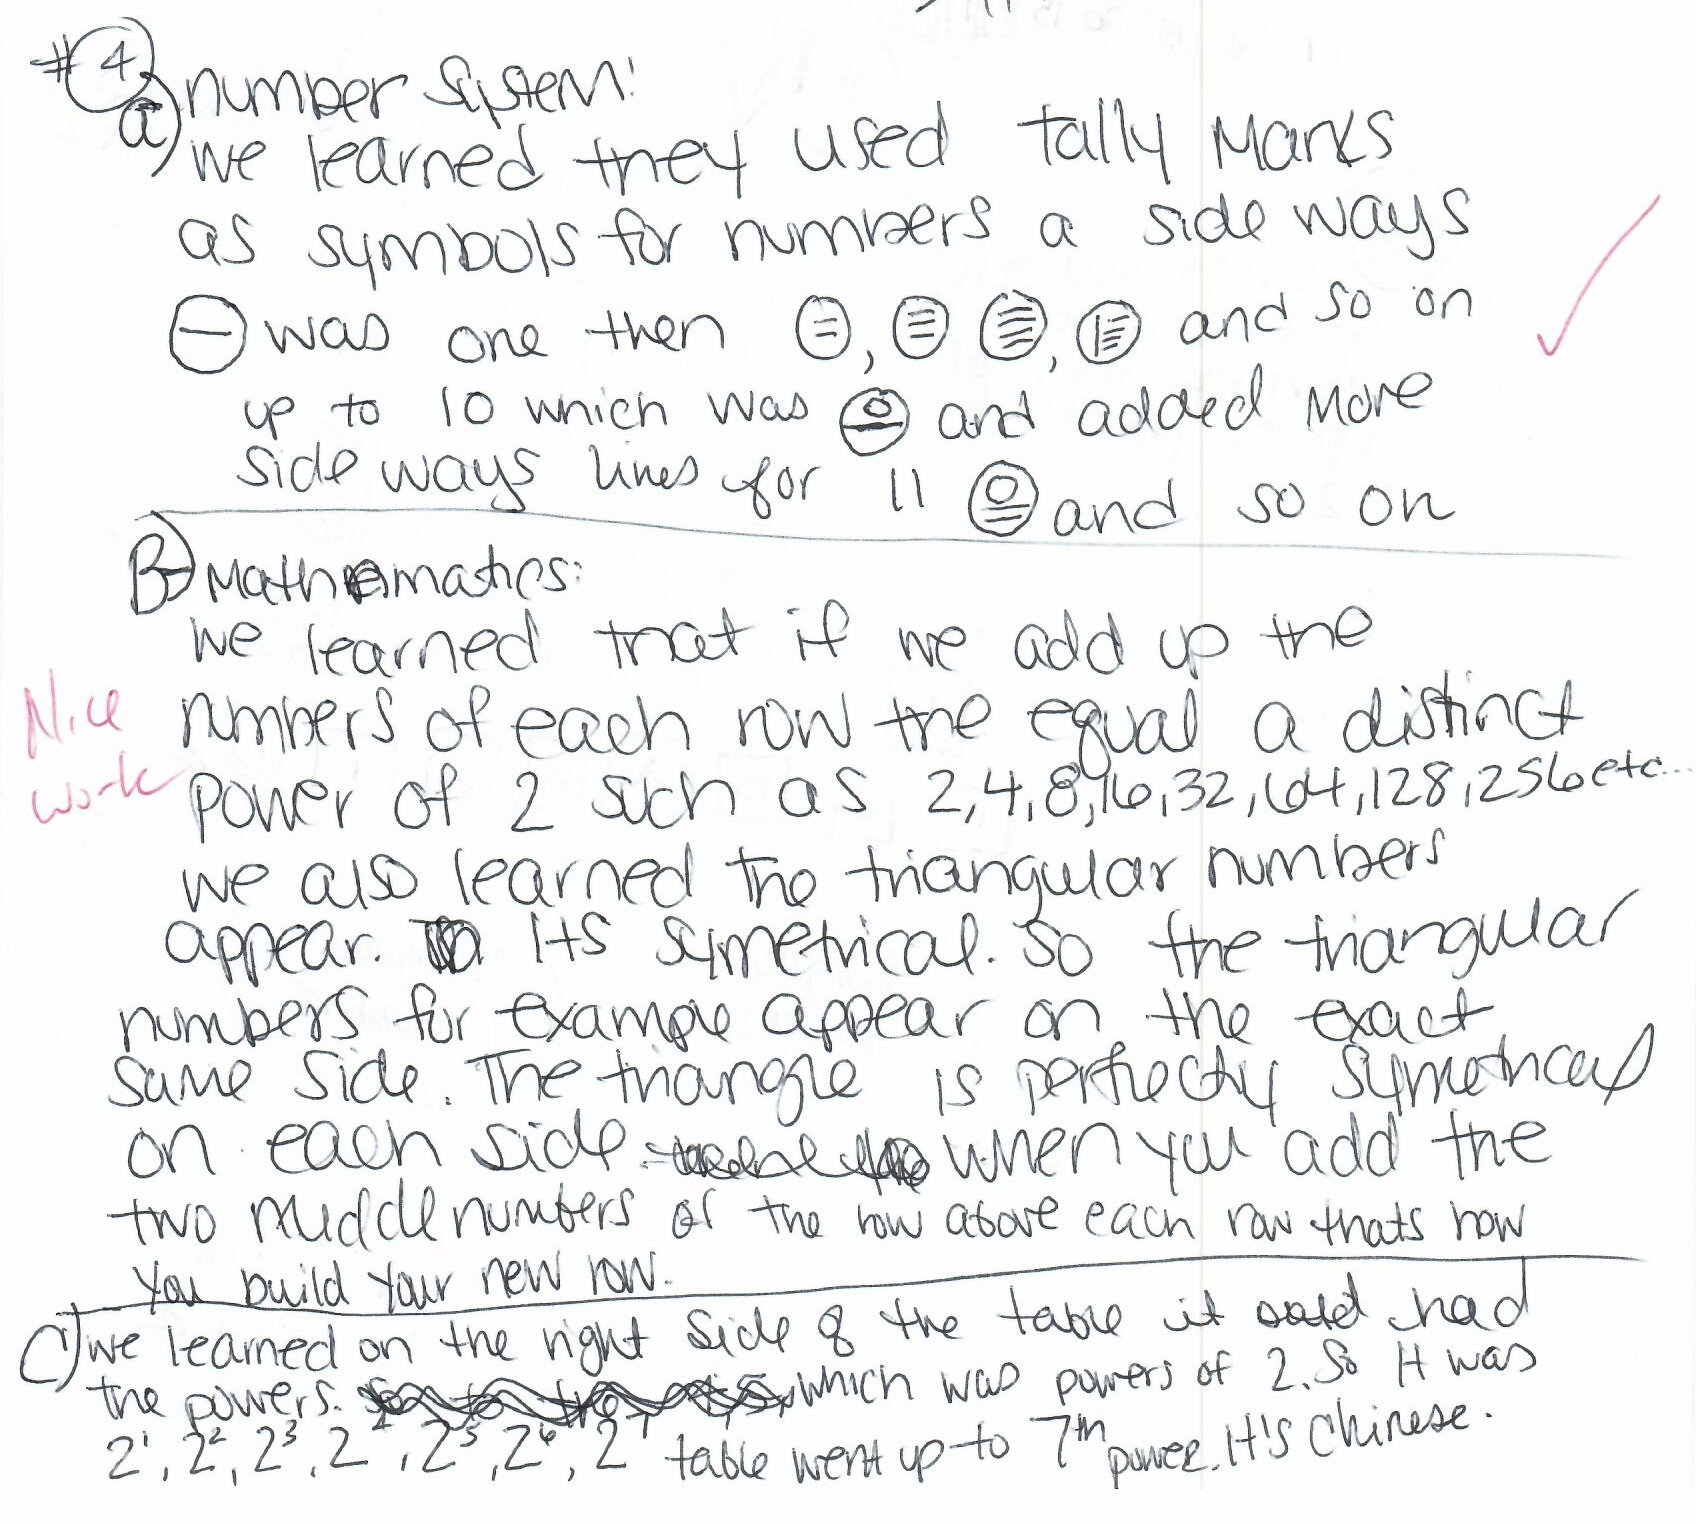 #4
a) number System:
we learned they used tally marks
as symbols for numbers a side ways
was one then , , and so on
up to 10 which was and added more
side ways lines for 11 and so on
B) Mathematics:
we learned that if we add up the
Nice numbers of each row the equal a distinct
work power of 2 such as 2,4,8,16,32,64,128,256 etc...
we also learned the triangular numbers
appear. Its symetrical. So the triangular
numbers for example appear on the exact
same side. The triangle is perfectly symetrical
on each side. when you add the
two middle numbers of the row above each row thats how
you build your new row.
C) we learned on the right side of the table it had
the powers. which was powers of 2. So it was
2¹, 2², 2³, 2⁴, 2⁵, 2⁶, 2⁷ table went up to 7th power. It's Chinese.